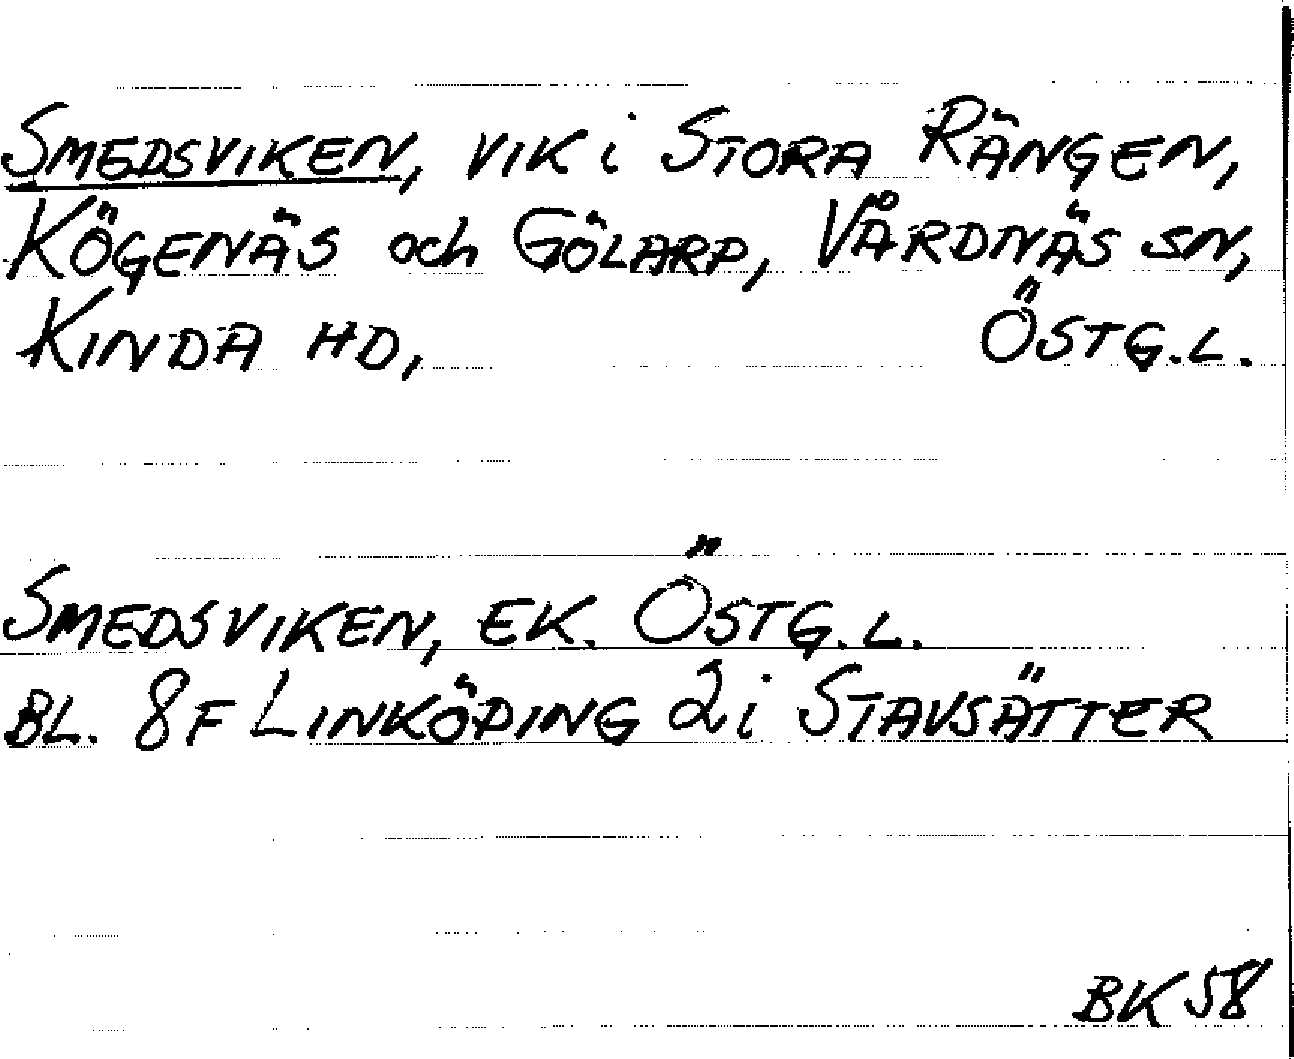 SMEDSVIKEN, VIK i STORA RÄNGEN,
KÖGENÄS och GÖLARP, VÅRDNÄS SN,
KINDA HD, ÖSTG.L.
SMEDSVIKEN, EK. ÖSTG.L.
BL. 8F LINKÖPING 2i STAVSÄTTER
BK 58